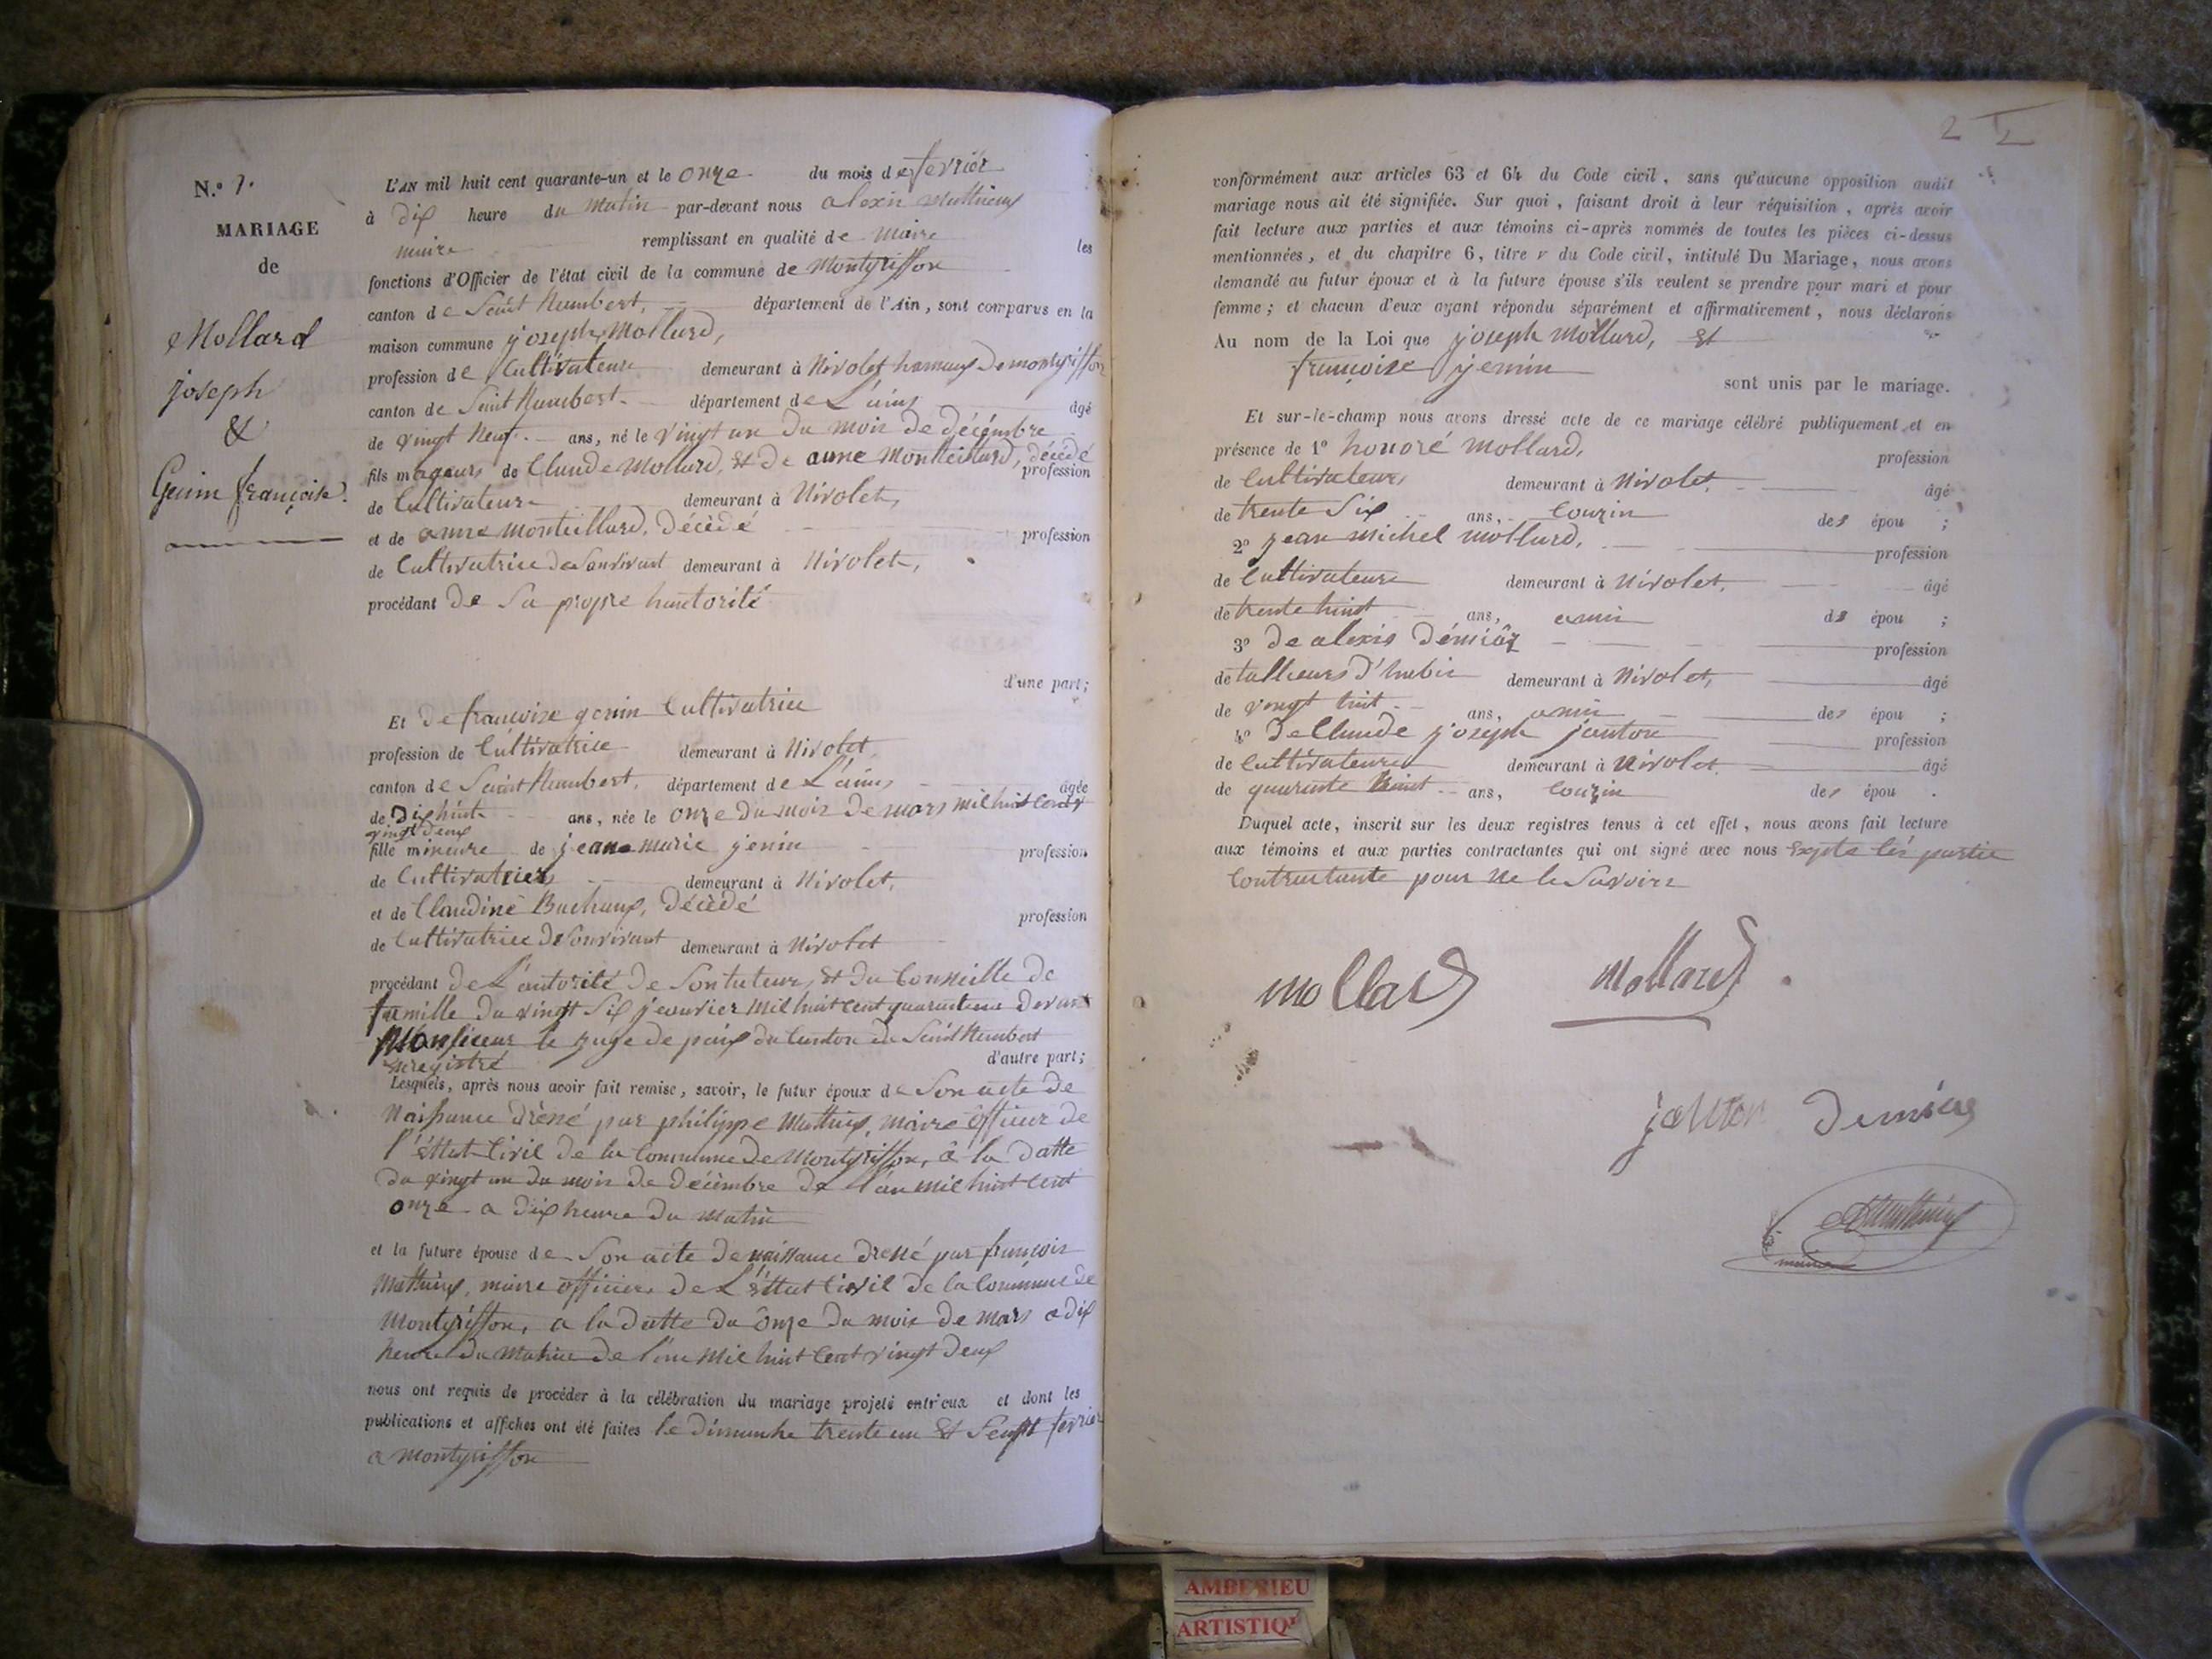 N.o 7.
MARIAGE
de
Mollard
joseph
&
Genin françoise.
L'AN mil huit cent quarante-un et le onze du mois de fevriér
à dix heure du matin par-devant nous alexis Matthieux
maire remplissant en qualité de maire les
fonctions d'Officier de l'état civil de la commune de Montgriffon
canton de Saint Rambert, département de l'Ain, sont comparus en la
maison commune joseph Mollard,
profession de Cultivateur demeurant à Nivolet hameaux de montgriffon
canton de Saint Rambert département de L'ains âgé
de vingt neuf ans, né le vingt un du mois de décémbre
fils mageurs de Claude Mollard, et de anne Monteillard, décédé
profession
de Cultivateur demeurant à Nivolet,
et de anne monteillard, décédé profession
de Cultivatrice de Sonvivant demeurant à Nivolet,
procédant de Sa propre hauctorité
d'une part;
Et de françoise genin Cultivatrice
profession de Cultivatrice demeurant à Nivolet
canton de Saint Rambert, département de L'ains âgée
de Dix huit ans, née le onze du mois de mars mil huit Cent
vingt deux
fille mineure de jean marie jenin profession
de Cultivateur demeurant à Nivolet,
et de Claudine Buchaux, décédé profession
de Cultivatrice de Sonvivant demeurant à Nivolet
procédant de L'autorité de Son tuteur, et du Conneille de
famille du vingt Six jeanvier mil huit cent quarante un devant
Monsieur le juge de paix du Canton de Saint Rambert
enregistré d'autre part;
Lesquels, après nous avoir fait remise, savoir, le futur époux de Son acte de
Naissance dréssé par philippe Matthieux, maire officier de
l'éttat Civil de la Commune de Montgriffon, à la datte
du vingt un du mois de décémbre de l'an mil huit cent
onze a dix heure du matin
et la future épouse de Son acte de naissance dressé par françois
Matthieux, maire officier de L'éttat Civil de la Commune de
Montgriffon, a la datte du onze du mois de mars a dix
heure du matin de l'an Mil huit Cent vingt deux
nous ont requis de procéder à la célébration du mariage projeté entr'eux et dont les
publications et affiches ont été faites le dimanche trente un et Sept fevrier
a Montgriffon
conformément aux articles 63 et 64 du Code civil, sans qu'aucune opposition audit
mariage nous ait été signifiée. Sur quoi, faisant droit à leur réquisition, après avoir
fait lecture aux parties et aux témoins ci-après nommés de toutes les pièces ci-dessus
mentionnées, et du chapitre 6, titre v du Code civil, intitulé Du Mariage, nous avons
demandé au futur époux et à la future épouse s'ils veulent se prendre pour mari et pour
femme; et chacun d'eux ayant répondu séparément et affirmativement, nous déclarons
Au nom de la Loi que joseph Mollard, et
françoise jenin
sont unis par le mariage.
Et sur-le-champ nous avons dressé acte de ce mariage célébré publiquement et en
présence de 1o honoré Mollard, profession
de Cultivateur, demeurant à Nivolet. âgé
de trente Six ans, Couzin des épou ;
2o jean michel mollard, profession
de Cultivateur demeurant à Nivolet, âgé
de trente huit ans, amis des épou ;
3o de alexis Démiâz profession
de tallieurs d'habis demeurant à Nivolet, âgé
de vingt huit ans, amis des épou ;
4o de Claude joseph janton profession
de Cultivateur demeurant à Nivolet. âgé
de quarante huit ans, Couzin des épou .
Duquel acte, inscrit sur les deux registres tenus à cet effet, nous avons fait lecture
aux témoins et aux parties contractantes qui ont signé avec nous Exsepte lés partie
Contractante pour ne le Savoire
mollard mollard
janton Demias
AMatthieux
maire
AMBERIEU
ARTISTIQ